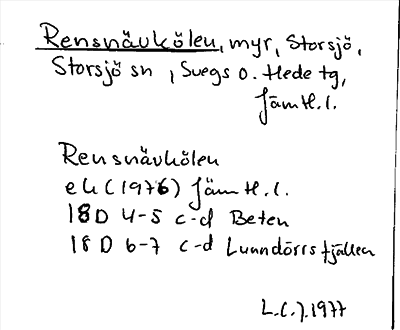 Rensnåvkölen, myr, Storsjö,
Storsjö sn, Svegs o. Hede tg,
Jämtl. l.
Rensnåvkölen
ek (1976) Jämtl. l.
18D 4-5 c-d Beten
18D 6-7 c-d Lunndörrsfjällen
L.C.J. 1977